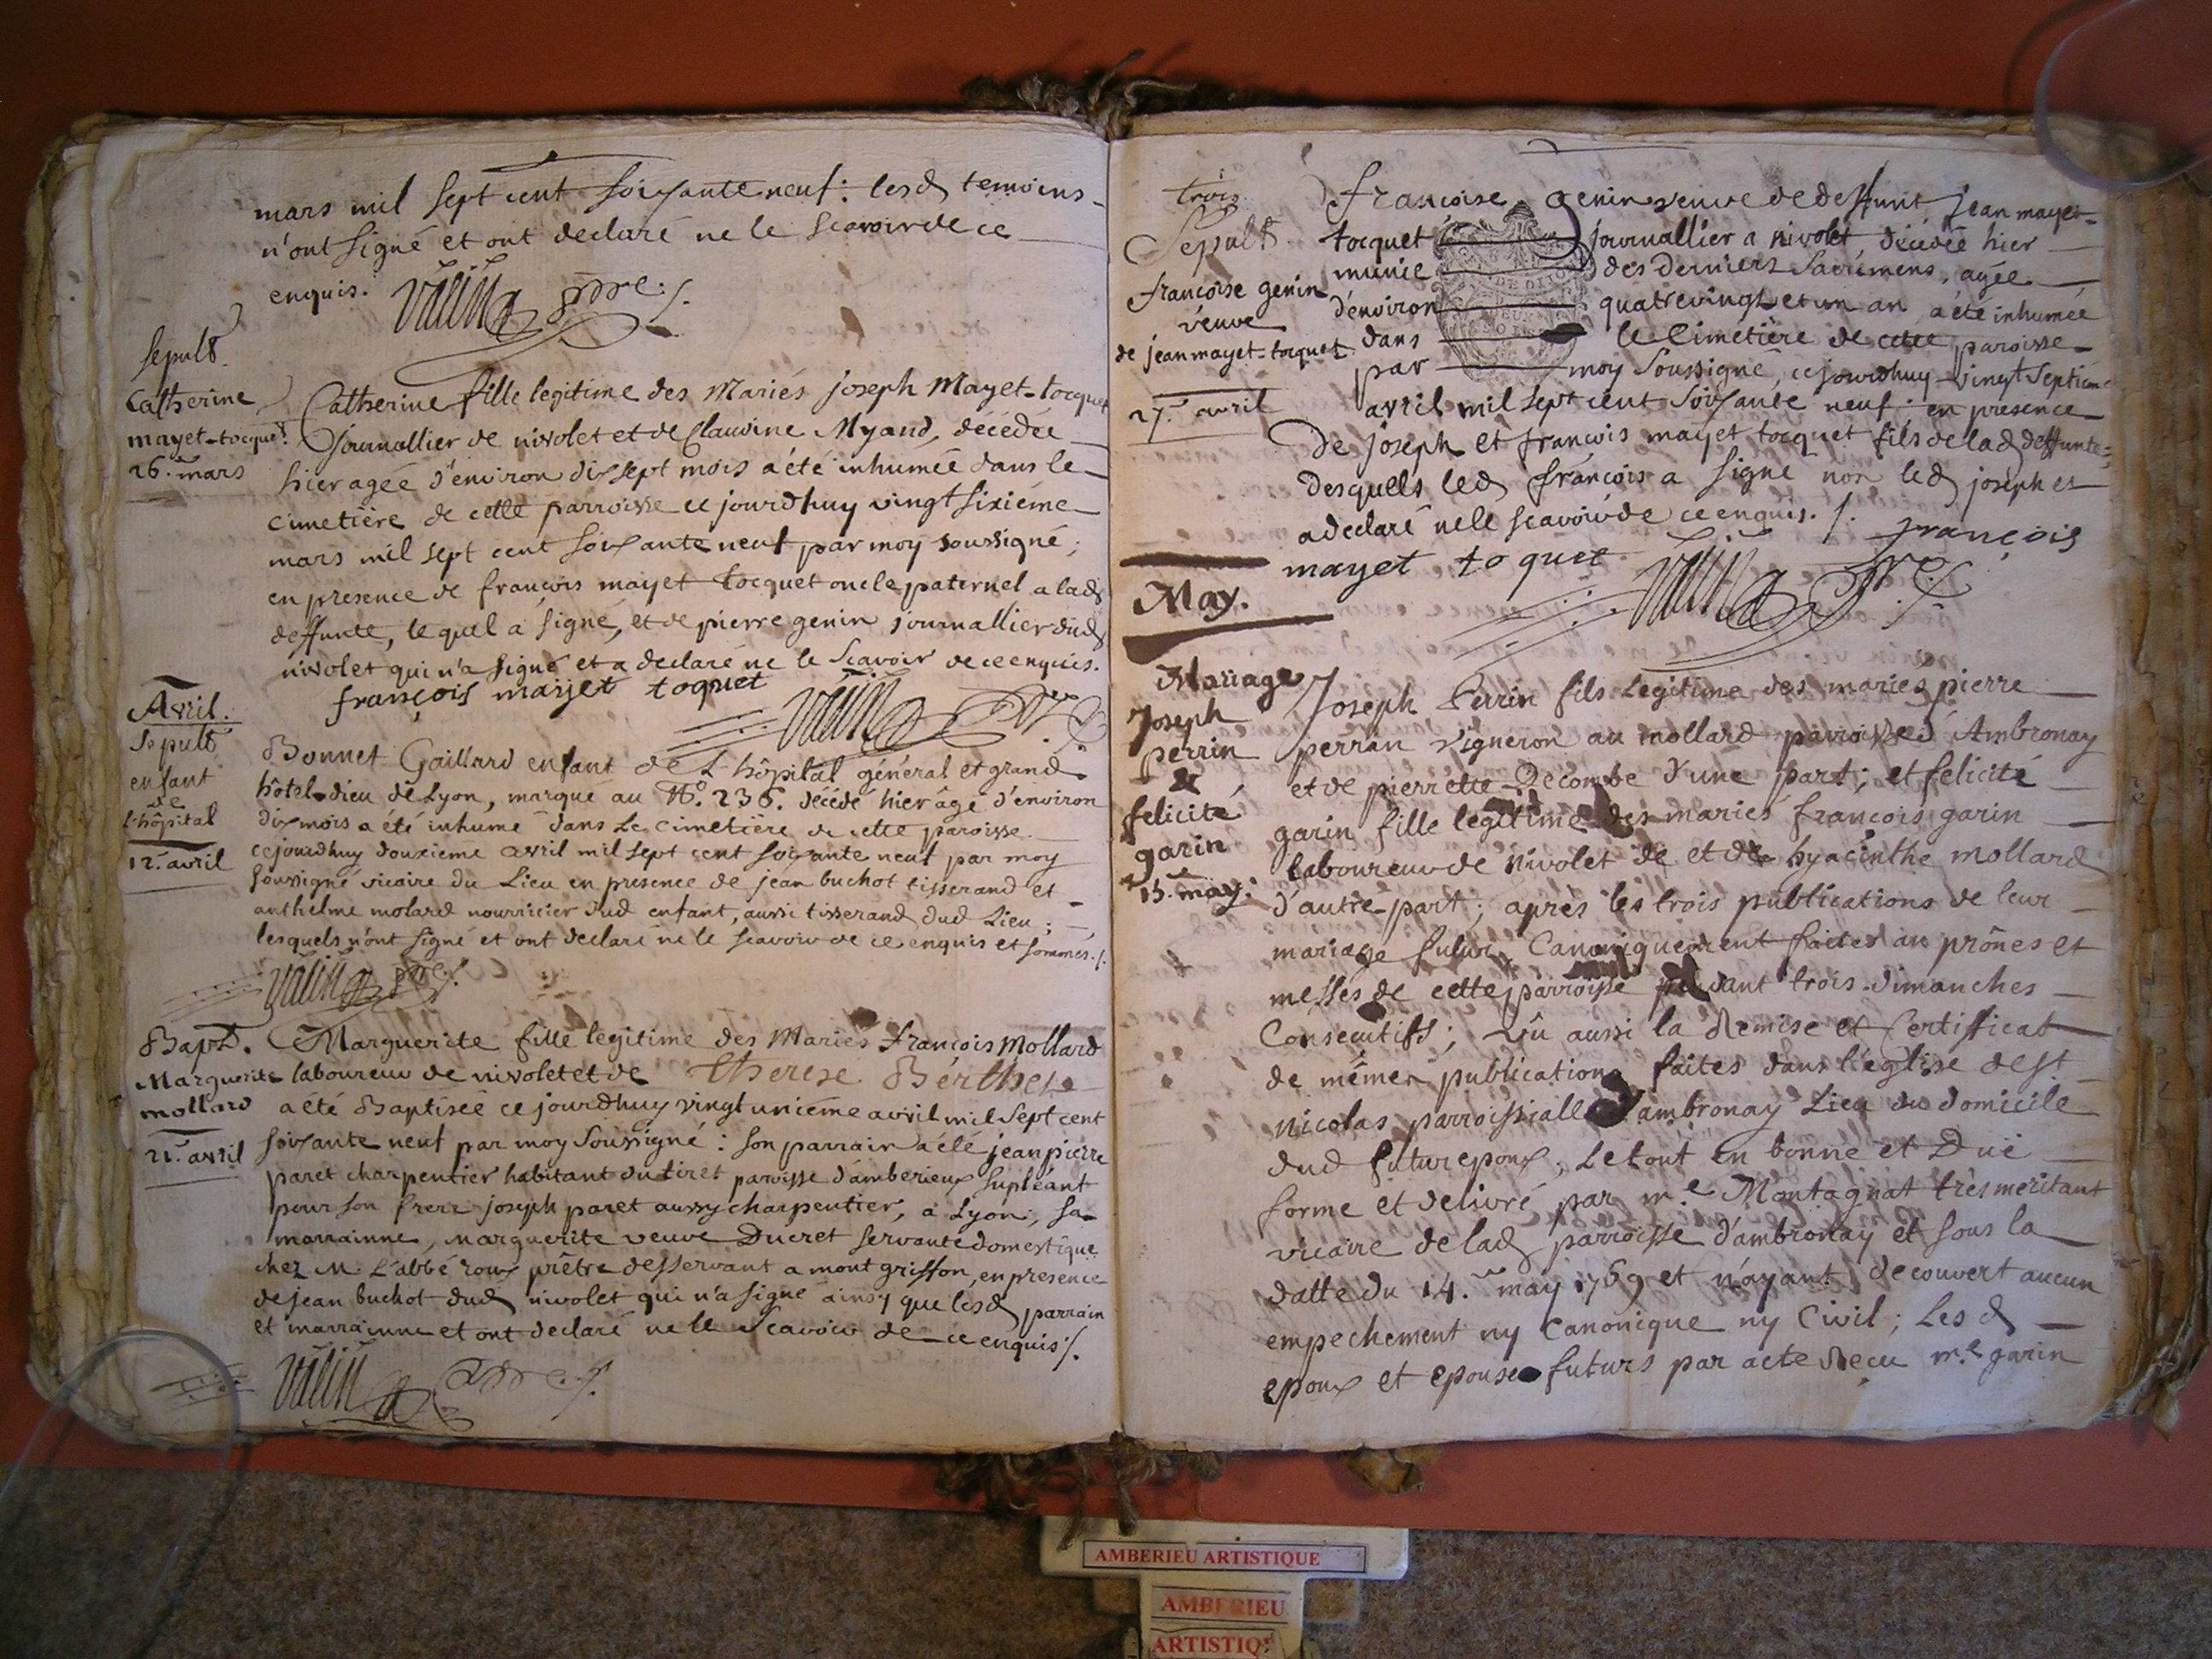 mars mil sept cent soixante neuf: lesd temoins
n'ont signé et ont declaré ne le scavoir de ce
enquis.
Sepult.
Catherine
mayet-tocquet
26. mars
Catherine fille legitime des Mariés joseph Mayet-tocquet
journallier de nivolet et de Claudine Myand, décédée
hier agée d'environ dix sept mois a été inhumée dans le
cimetière de cette parroisse ce jourdhuy vingt sixième
mars mil sept cent soixante neuf par moy soussigné;
en presence de francois mayet tocquet oncle paternel a lad
deffunte, lequel a signé, et de pierre genin journallier dud
nivolet qui n'a signé et a declaré ne le scavoir de ce enquis.
françois mayet toquet
Avril.
Sepult
enfant
de
l'hôpital
12. avril
Bonnet Gaillard enfant de L'hôpital géneral et grand
hôtel-dieu de Lyon, marqué au N°. 236. décédé hier âgé d'environ
dix mois a été inhumé dans le cimetière de cette paroisse
cejourdhuy douxieme avril mil sept cent soixante neuf par moy
soussigné vicaire du Lieu en presence de jean buchot tisserand et
anthelme molard nourricier dud enfant, aussi tisserand dud Lieu;
lesquels n'ont signé et ont declaré ne le scavoir de ce enquis et sommés./.
Bapt.
Marguerite
mollard
21. avril
Marguerite fille legitime des Mariés françois Mollard
laboureur de nivolet et de Therese Berthet
a été Baptiseé ce jourdhuy vingt unième avril mil sept cent
soixante neuf par moy soussigné: son parrain a été jean pierre
paret charpentier habitant du tiret paroisse d'amberieux supléant
pour son frere joseph paret aussy charpentier, a Lyon, sa
marrainne, marguerite veuve Ducret servante domestique
chez M. L'abbé roux prêtre desservant a mont griffon, en presence
de jean buchot dud nivolet qui n'a signé ainsy que lesd parrain
et marrainne et ont declaré ne le scavoir de ce enquis./.
trois
Sepult
françoise genin
veuve
de jean mayet-tocquet
27. avril
françoise genin veuve de deffunt jean mayet
tocquet journallier a nivolet, décedée hier
munie des derniers Sacrémens, agée
d'environ quatrevingt et un an a été inhumée
dans le Cimetière de cette paroisse
par moy soussigné, cejourdhuy vingt septième
avril mil sept cent soixante neuf: en presence
de joseph et francois mayet tocquet fils de lad deffunte
desquells led françois a signé non led joseph et
a declaré ne le scavoir de ce enquis./.
françois
mayet toquet
May.
Mariage
Joseph
perrin
&
felicité
garin
15. may.
Joseph Perrin fils Legitime des mariés pierre
perrin vigneron au mollard paroisse d'Ambronay
et de pierrette Decombe d'une part; et felicité
garin fille legitime des mariés françois garin
laboureur de nivolet de et de hyacinthe mollard
d'autre part; aprés les trois publications de leur
mariage futur, Canoniquement faites au prônes et
messes de cette parroisse pendant trois dimanches
Consecutifs; vû aussi la Remise et Certificat
de mêmes publications faites dans l'église de st
nicolas parroissialle d'ambronay Lieu du domicile
dud futur epoux; Le tout en bonne et Duë
forme et delivré par m.e Montagnat très meritant
vicaire de lad parroisse d'ambronay et sous la
datte du 14. may 1769 et n'ayant decouvert aucun
empechement ny Canonique ny Civil; Les d
epoux et epouse futurs par acte Reçu m.e garin
AMBERIEU ARTISTIQUE
AMBERIEU
ARTISTIQ